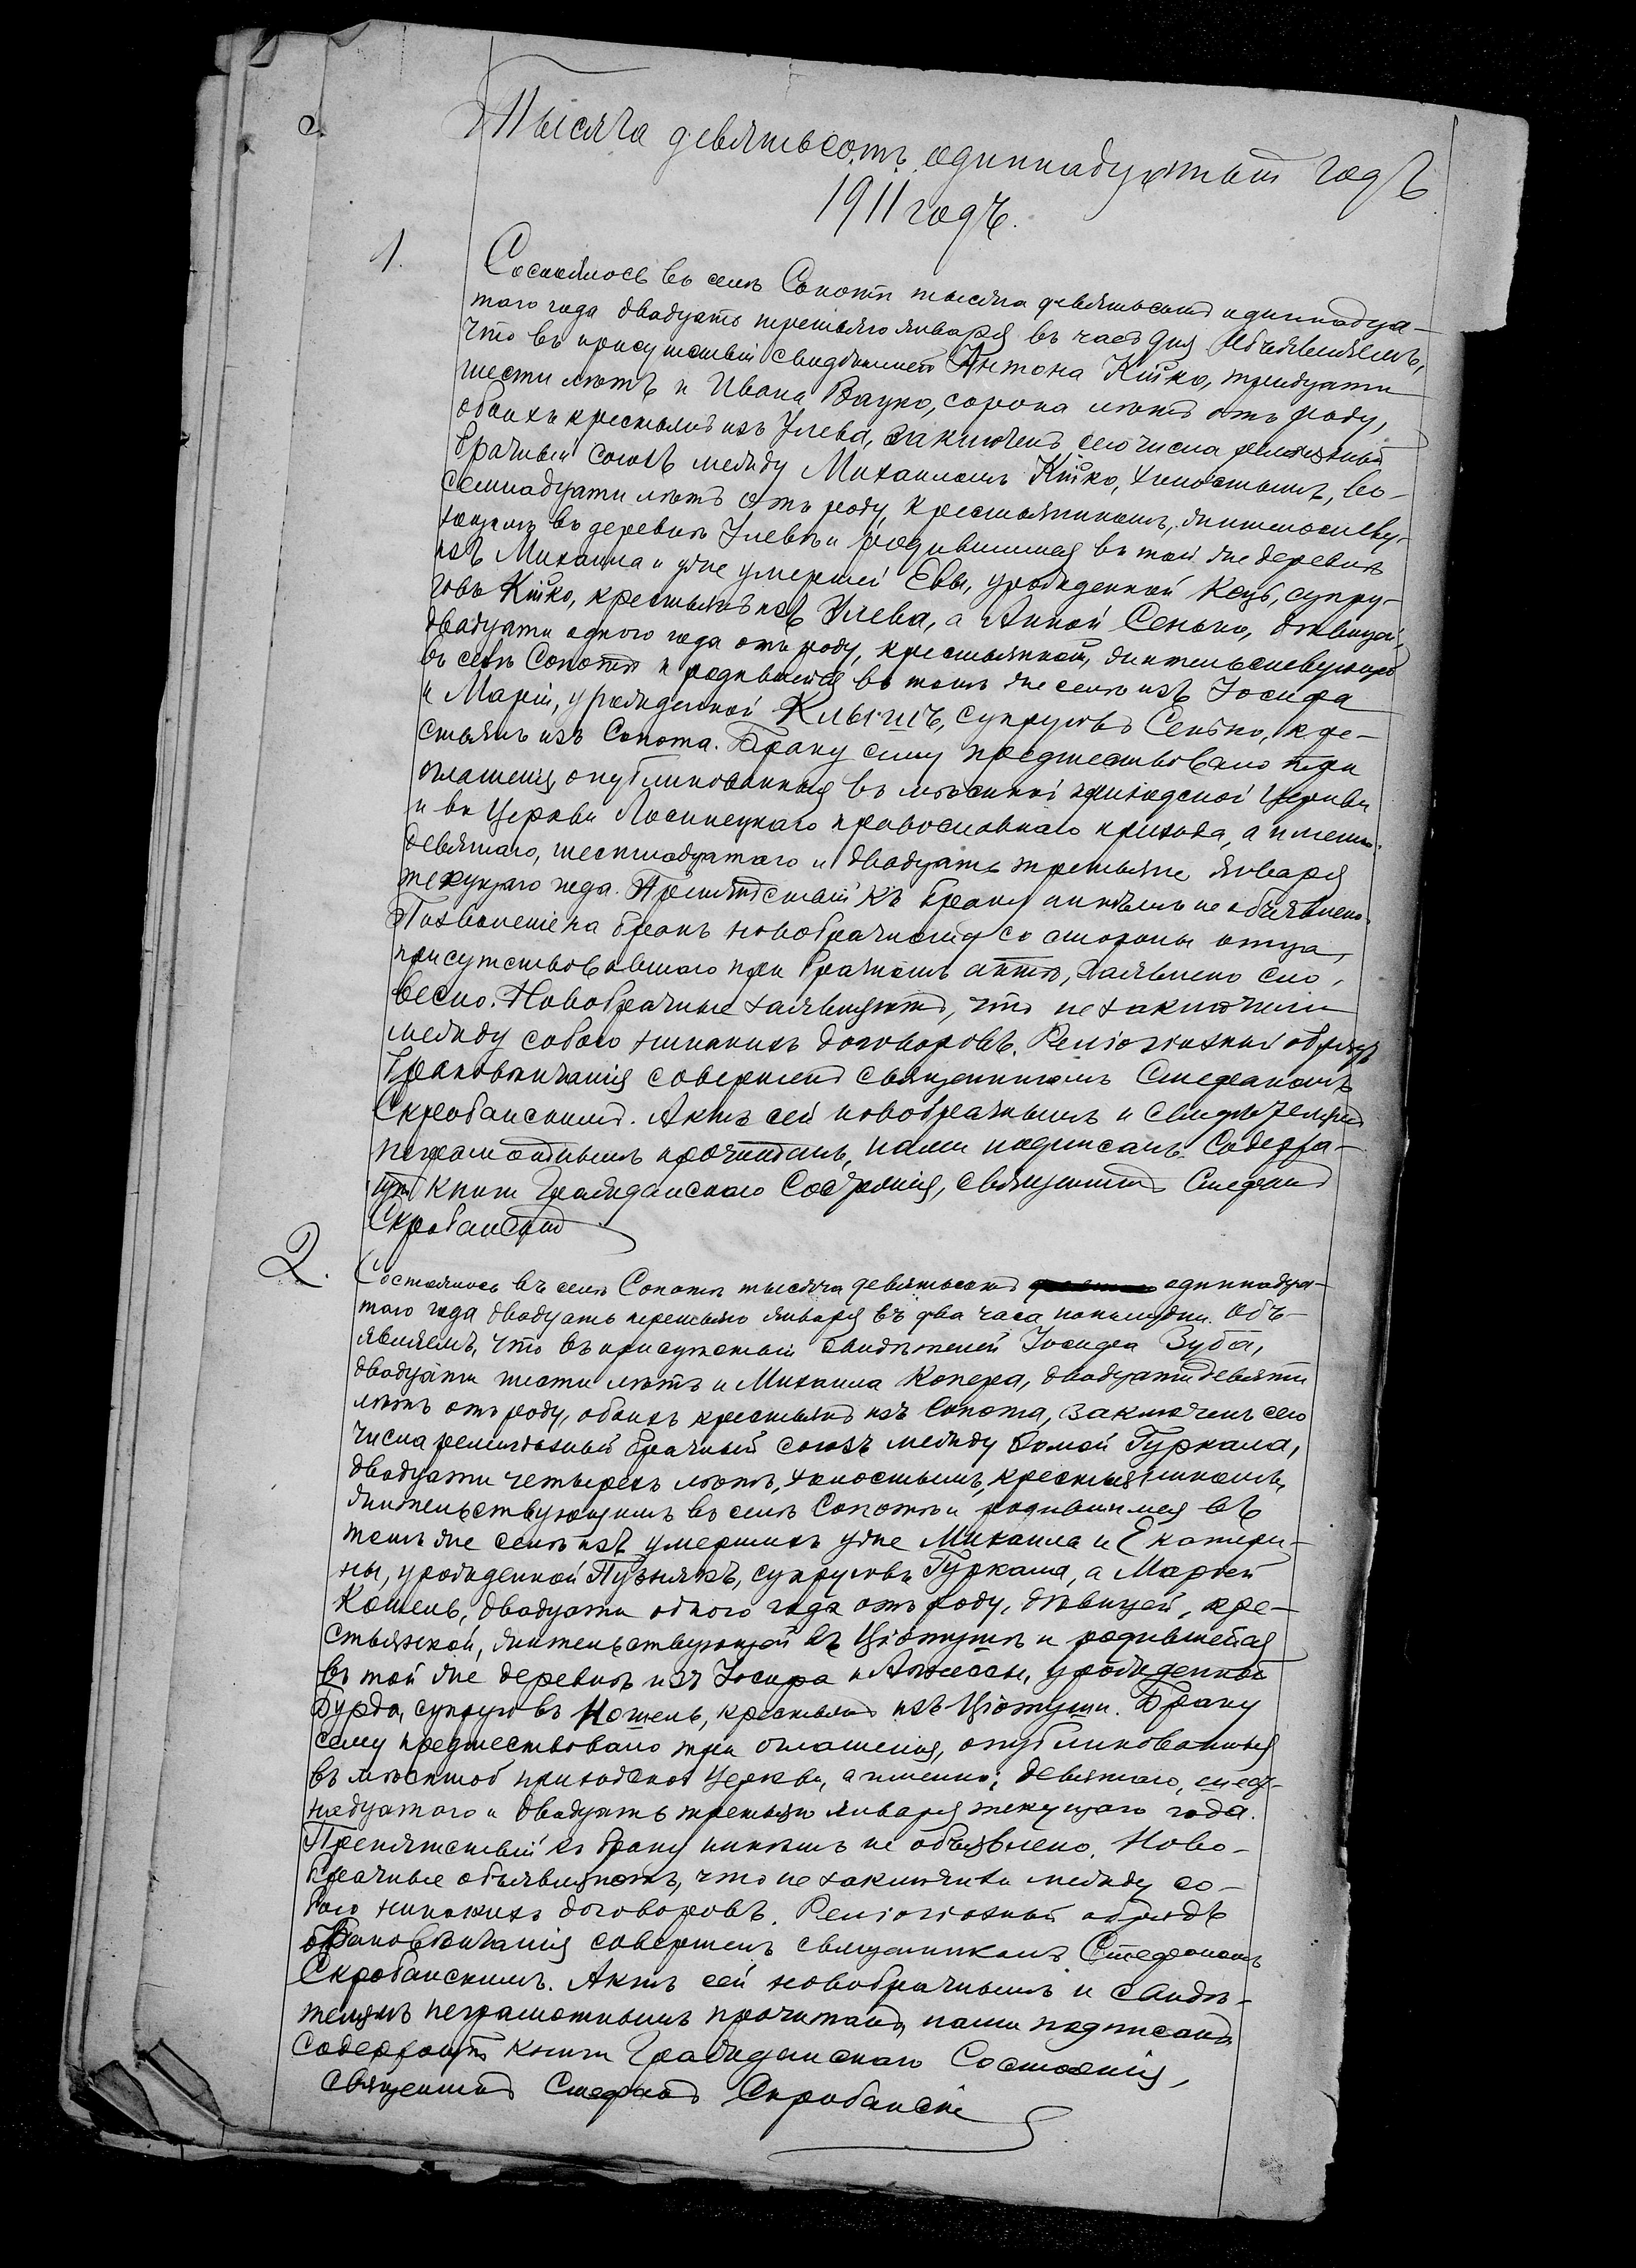 Тысяча девятьсотъ одиннадцатый годъ
1911 годъ.
1. Состоялось въ селѣ Сопотѣ тысяча девятьсотъ одиннадца-
таго года двадцать третьяго января въ часъ дня. Объявляемъ,
что въ присутствіи свидѣтелей Антона Кійко, тридцати
шести лѣтъ и Ивана Вацко, сорока лѣтъ отъ роду,
обоихъ крестьянъ изъ Улева, заключенъ сего числа религіозный
брачный союзъ между Михаиломъ Кійко, холостымъ, во-
семнадцати лѣтъ отъ роду, крестьяниномъ, жительству-
ющимъ въ деревнѣ Улевѣ и родившимся въ той же деревнѣ
изъ Михаила и уже умершей Евы, урожденной Коць, супру-
говъ Кійко, крестьянъ изъ Улева, а Анной Сенько, дѣвицей,
двадцати одного года отъ роду, крестьянкой, жительствующей
въ селѣ Сопотѣ и родившейся въ томъ же селѣ изъ Іосифа
и Маріи, урожденной Клышъ, супруговъ Сенько, кре-
стьянъ изъ Сопота. Браку сему предшествовало три
оглашенія, опубликованныя въ мѣстной приходской Церкви
и въ Церкви Лосинецкаго православнаго прихода, а именно:
девятаго, шестнадцатаго и двадцать третьяго января
текущаго года. Препятствій къ браку никѣмъ не объявлено.
Позволеніе на бракъ новобрачному со стороны отца,
присутствовавшаго при брачномъ актѣ, заявлено сло-
весно. Новобрачные заявляютъ, что не заключили
между собою никакихъ договоровъ. Религіозный обрядъ
браковѣнчанія совершенъ священникомъ Стефаномъ
Скробанскимъ. Актъ сей новобрачнымъ и свидѣтелямъ
неграмотнымъ прочитанъ, нами подписанъ. Содержа-
щій книги Гражданскаго Состоянія, священникъ Стефанъ
Скробанскій
2. Состоялось въ селѣ Сопотѣ тысяча девятьсотъ одиннадца-
таго года двадцать третьяго января въ два часа пополудни. Объ-
являемъ, что въ присутствіи свидѣтелей Іосифа Зуба,
двадцати шести лѣтъ и Михаила Копера, двадцати девяти
лѣтъ отъ роду, обоихъ крестьянъ изъ Сопота, заключенъ сего
числа религіозный брачный союзъ между Ѳомой Гуркала,
двадцати четырехъ лѣтъ, холостымъ, крестьяниномъ,
жительствующимъ въ селѣ Сопотѣ и родившимся въ
томъ же селѣ изъ умершихъ уже Михаила и Екатери-
ны, урожденной Пузнякъ, супруговъ Гуркала, а Марьей
Кошель, двадцати одного года отъ роду, дѣвицей, кре-
стьянкой, жительствующей въ Ціотушѣ и родившейся
въ той же деревнѣ изъ Іосифа и Агнессы, урожденной
Бурда, супруговъ Кошель, крестьянъ изъ Ціотуши. Браку
сему предшествовало три оглашенія, опубликованныя
въ мѣстной приходской Церкви, а именно: девятаго, шест-
надцатаго и двадцать третьяго января текущаго года.
Препятствій къ браку никѣмъ не объявлено. Ново-
брачные объявляютъ, что не заключили между со-
бою никакихъ договоровъ. Религіозный обрядъ
браковѣнчанія совершенъ священникомъ Стефаномъ
Скробанскимъ. Актъ сей новобрачнымъ и свидѣ-
телямъ неграмотнымъ прочитанъ, нами подписанъ.
Содержащій книги Гражданскаго Состоянія,
священникъ Стефанъ Скробанскій